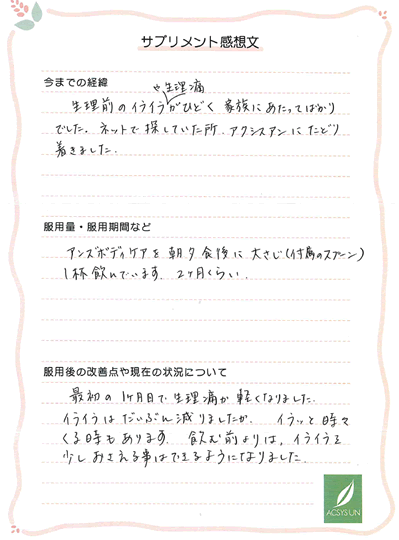 サプリメント感想文
今までの経緯
や生理痛
生理前のイライラがひどく 家族にあたってばかり
でした。ネットで探していた所、アクシスアンにたどり
着きました。
服用量・服用期間など
アンズボディケアを朝夕食後に大さじ(付属のスプーン)
1杯飲んでいます。2ヶ月くらい。
服用後の改善点や現在の状況について
最初の1ヶ月目で生理痛が軽くなりました。
イライラはだいぶん減りましたが、イラッと時々
くる時もあります。飲む前よりは、イライラを
少しおさえる事はできるようにてなりました。
ACSYS'UN